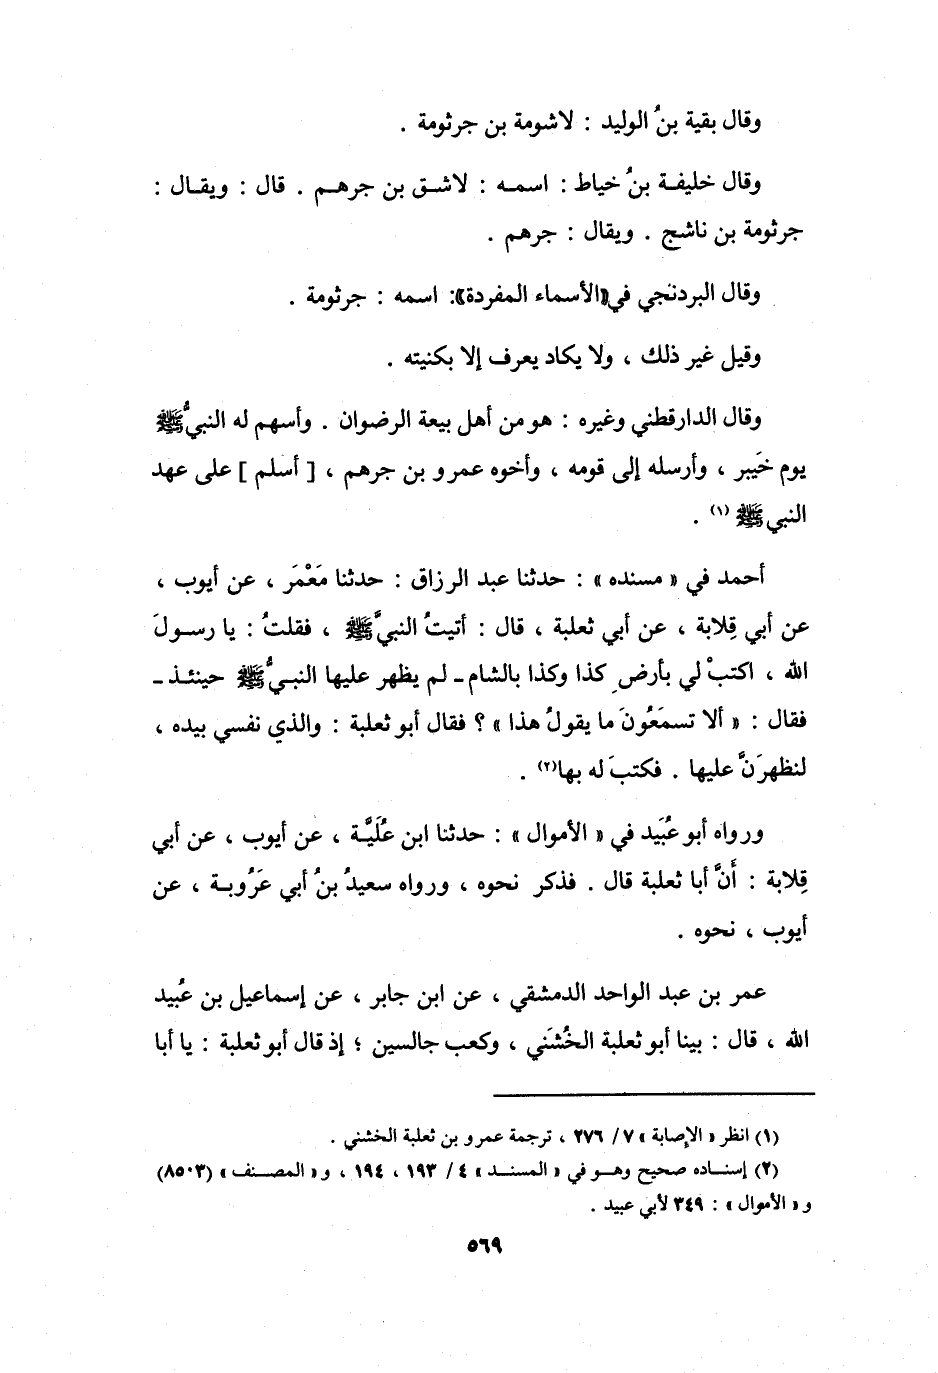 وقال بقية بنُ الوليد : لاشومة بن جرثومة .
وقال خليفة بنُ خياط : اسمه : لاشق بن جرهم . قال : ويقال :
جرثومة بن ناشج . ويقال : جرهم .
وقال البردنجي في«الأسماء المفردة»: اسمه : جرثومة .
وقيل غير ذلك ، ولا يكاد يعرف إلا بكنيته .
وقال الدارقطني وغيره : هو من أهل بيعة الرضوان . وأسهم له النبيُّ ﷺ
يوم خَيبر ، وأرسله إلى قومه ، وأخوه عمرو بن جرهم ، [ أسلم ] على عهد
النبي ﷺ (١) .
أحمد في « مسنده » : حدثنا عبد الرزاق : حدثنا مَعْمَر ، عن أيوب ،
عن أبي قِلابة ، عن أبي ثعلبة ، قال : أتيتُ النبيَّ ﷺ ، فقلتُ : يا رسولَ
الله ، اكتبْ لي بأرضِ كذا وكذا بالشام ـ لم يظهر عليها النبيُّ ﷺ حينئذ ـ
فقال : « ألا تسمَعُونَ ما يقولُ هذا » ؟ فقال أبو ثعلبة : والذي نفسي بيده ،
لنظهرَنَّ عليها . فكتبَ له بها(٢) .
ورواه أبو عُبَيد في « الأموال » : حدثنا ابن عُلَيَّة ، عن أيوب ، عن أبي
قِلابة : أَنَّ أبا ثعلبة قال . فذكر نحوه ، ورواه سعيدُ بنُ أبي عَرُوبة ، عن
أيوب ، نحوه .
عمر بن عبد الواحد الدمشقي ، عن ابن جابر ، عن إسماعيل بن عُبيد
الله ، قال : بينا أبو ثعلبة الخُشَني ، وكعب جالسين ؛ إذ قال أبو ثعلبة : يا أبا
(١) انظر « الإصابة » ٧/ ٢٧٦ ، ترجمة عمرو بن ثعلبة الخشني .
(٢) إسناده صحيح وهو في « المسند » ٤ / ١٩٣ ، ١٩٤ ، و « المصنف » (٨٥٠٣)
و « الأموال » : ٣٤٩ لأبي عبيد .
٥٦٩